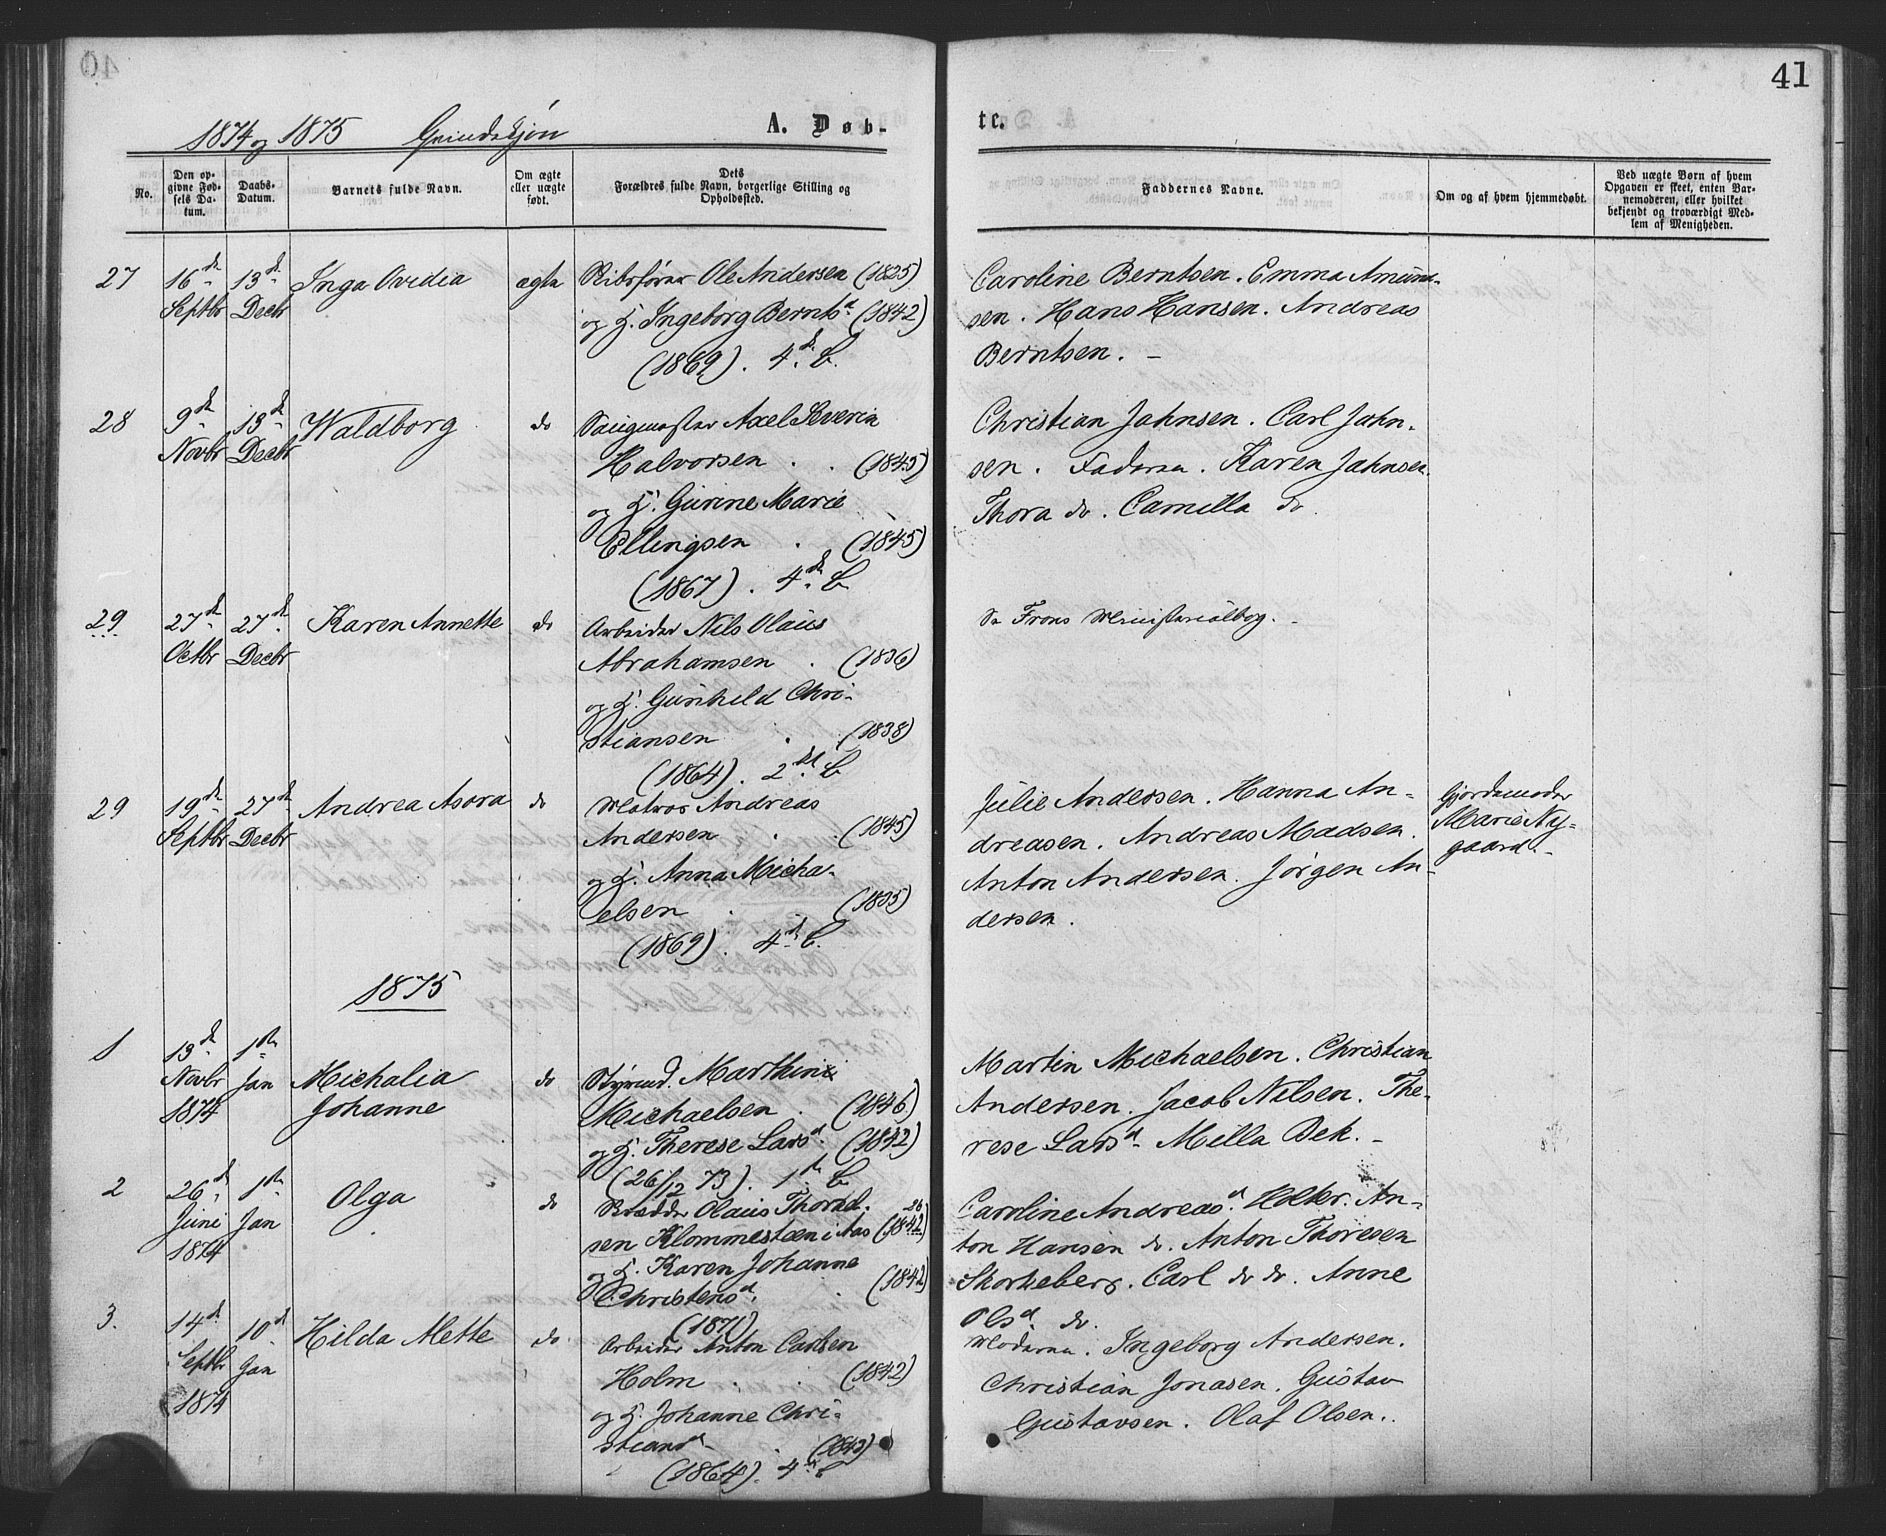 41
1874 og 1875 Grindskjøn A. Døb-
te.
No.
Den op-
givne Fød-
sels Da-
tum.
Daabs-
Datum.
Barnets fulde Navn.
Om ægte
eller uægte
født.
Dets
Forældres fulde Navn, borgerlige Stilling og
Opholdssted.
Faddernes Navne.
Om og af hvem hjemmedøbt.
Ved uægte Børn af hvem
Opgaven er skeet, enten Bar-
nemoderen, eller hvilket
bekjendt og troværdigt Med-
lem af Menigheden.
27
16de
Septbr
13de
Decbr
Inga Ovidia
ægte
Skibsfører Ole Andersen (1825)
og H. Ingeborg Bernts d (1842)
(1869). 4de B.
Caroline Berntsen. Emma Amund-
sen. Hans Hansen. Andreas
Berntsen. –
28
9de
Novbr
13de
Decbr
Waldborg
do
Saugmester Axel Severin
Halvorsen . . (1845)
og H. Gurine Marie
Ellingsen . (1845)
(1867). 4de B
Christian Jahnsen. Carl Jahn-
sen. Faderen. Karen Jahnsen.
Thora do. Camilla do
29
27de
Octbr
27de
Decbr
Karen Annette
do
Arbeider Nils Olaus
Abrahamsen . (1836)
og H. Gunhild Chri-
stiansen . (1838)
(1864). 2det B
Se Frons Ministerialbog. –
29
19de
Septbr
27de
Decbr
Andrea Asora
do
Matros Andreas
Andersen . . (1845)
og H. Anna Micha-
elsen . . (1835)
(1869). 4de B.
Julie Andersen. Hanna An-
dreasen. Andreas Madsen.
Anton Andersen. Jørgen An-
dersen.
Gjordemoder
Marie Ny-
gaard. –
1875
1
13de
Novbr
1874
1ste
Jan
Michalia
Johanne
do
Styrmd. Marthin
Michaelsen . (1846)
og H. Therese Lars d. (1842)
(26/12 73). 1ste B
Martin Michaelsen. Christian
Andersen. Jacob Nilsen. The-
rese Lars d. Milla Bek. –
2
26de
Juni
1874
1ste
Jan
Olga
do
Olaus Thorvald-
sen Klommesteen i Aas (1842)
og H. Karen Johanne
Christens d. . (1842)
(1871)
Caroline Andreas d. Holter. An-
ton Hansen do. Anton Thoresen
Skorkeberg. Carl do do. Anne
Ols d. do.
3.
14de
Septbr
1874
10de
Jan
Hilda Mette
do
Arbeider Anton Carlsen
Holm . . (1842)
og H. Johanne Chri-
stians d . (1843)
(1864). 4de B
Moderen. Ingeborg Andersen.
Christian Jonasen. Gustav
Gustavsen. Olaf Olsen.